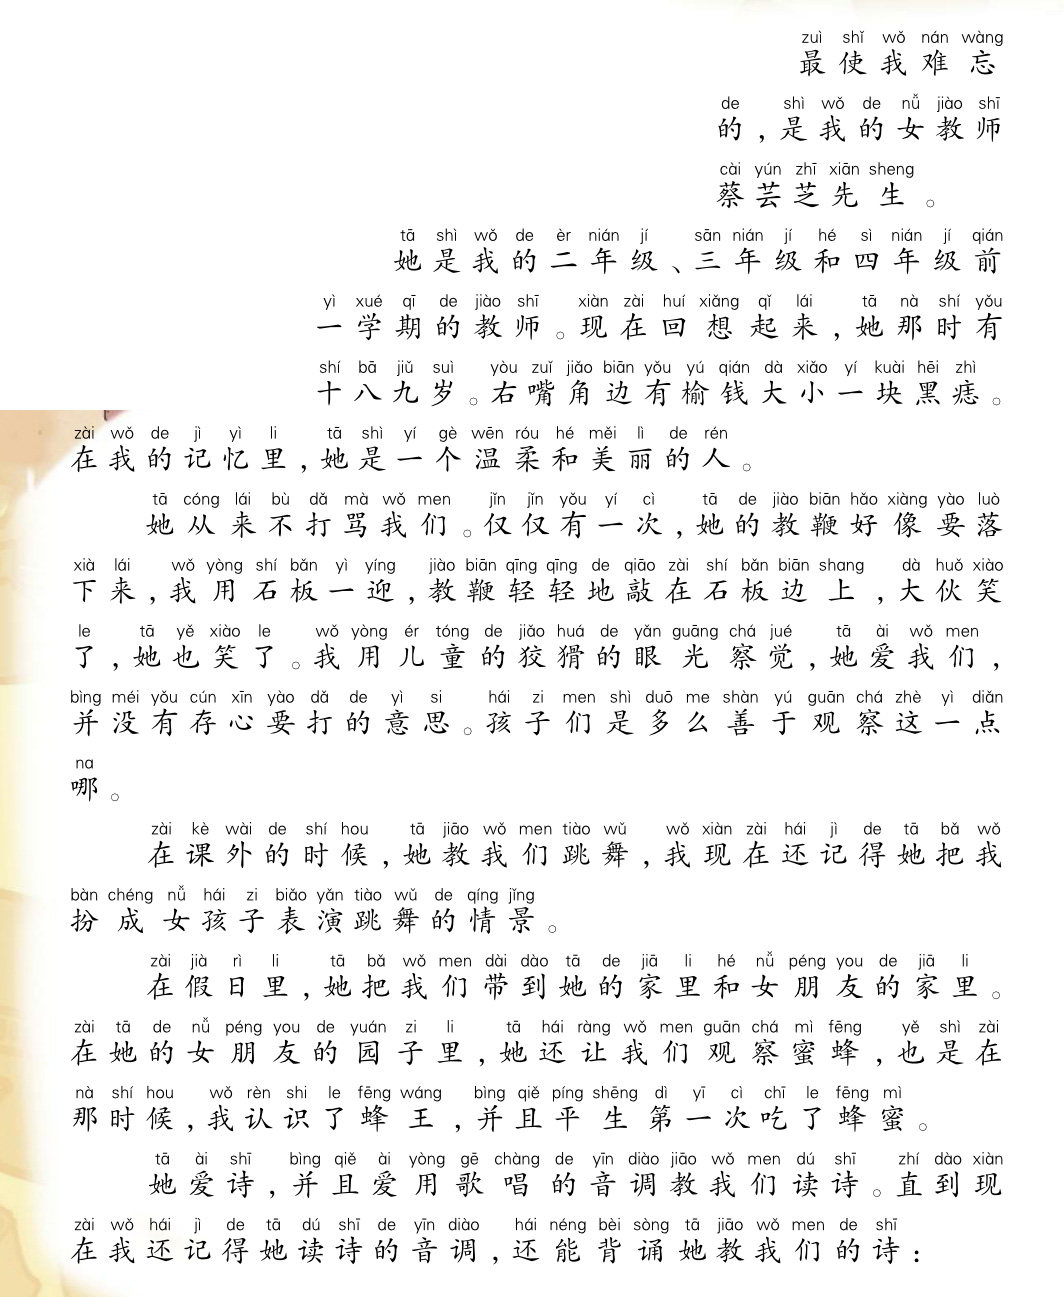 zuì shǐ wǒ nán wàng
最使我难忘
de shì wǒ de nǚ jiào shī
的，是我的女教师
cài yún zhī xiān sheng
蔡芸芝先生。
tā shì wǒ de èr nián jí sān nián jí hé sì nián jí qián
她是我的二年级、三年级和四年级前
yì xué qī de jiào shī xiàn zài huí xiǎng qǐ lái tā nà shí yǒu
一学期的教师。现在回想起来，她那时有
shí bā jiǔ suì yòu zuǐ jiǎo biān yǒu yú qián dà xiǎo yí kuài hēi zhì
十八九岁。右嘴角边有榆钱大小一块黑痣。
zài wǒ de jì yì li tā shì yí gè wēn róu hé měi lì de rén
在我的记忆里，她是一个温柔和美丽的人。
tā cóng lái bù dǎ mà wǒ men jǐn jǐn yǒu yí cì tā de jiào biān hǎo xiàng yào luò
她从来不打骂我们。仅仅有一次，她的教鞭好像要落
xià lái wǒ yòng shí bǎn yì yíng jiào biān qīng qīng de qiāo zài shí bǎn biān shang dà huǒ xiào
下来，我用石板一迎，教鞭轻轻地敲在石板边上，大伙笑
le tā yě xiào le wǒ yòng ér tóng de jiǎo huá de yǎn guāng chá jué tā ài wǒ men
了，她也笑了。我用儿童的狡猾的眼光察觉，她爱我们，
bìng méi yǒu cún xīn yào dǎ de yì si hái zi men shì duō me shàn yú guān chá zhè yì diǎn
并没有存心要打的意思。孩子们是多么善于观察这一点
na
哪。
zài kè wài de shí hou tā jiāo wǒ men tiào wǔ wǒ xiàn zài hái jì de tā bǎ wǒ
在课外的时候，她教我们跳舞，我现在还记得她把我
bàn chéng nǚ hái zi biǎo yǎn tiào wǔ de qíng jǐng
扮成女孩子表演跳舞的情景。
zài jià rì li tā bǎ wǒ men dài dào tā de jiā li hé nǚ péng you de jiā li
在假日里，她把我们带到她的家里和女朋友的家里。
zài tā de nǚ péng you de yuán zi li tā hái ràng wǒ men guān chá mì fēng yě shì zài
在她的女朋友的园子里，她还让我们观察蜜蜂，也是在
nà shí hou wǒ rèn shi le fēng wáng bìng qiě píng shēng dì yī cì chī le fēng mì
那时候，我认识了蜂王，并且平生第一次吃了蜂蜜。
tā ài shī bìng qiě ài yòng gē chàng de yīn diào jiāo wǒ men dú shī zhí dào xiàn
她爱诗，并且爱用歌唱的音调教我们读诗。直到现
zài wǒ hái jì de tā dú shī de yīn diào hái néng bèi sòng tā jiāo wǒ men de shī
在我还记得她读诗的音调，还能背诵她教我们的诗：